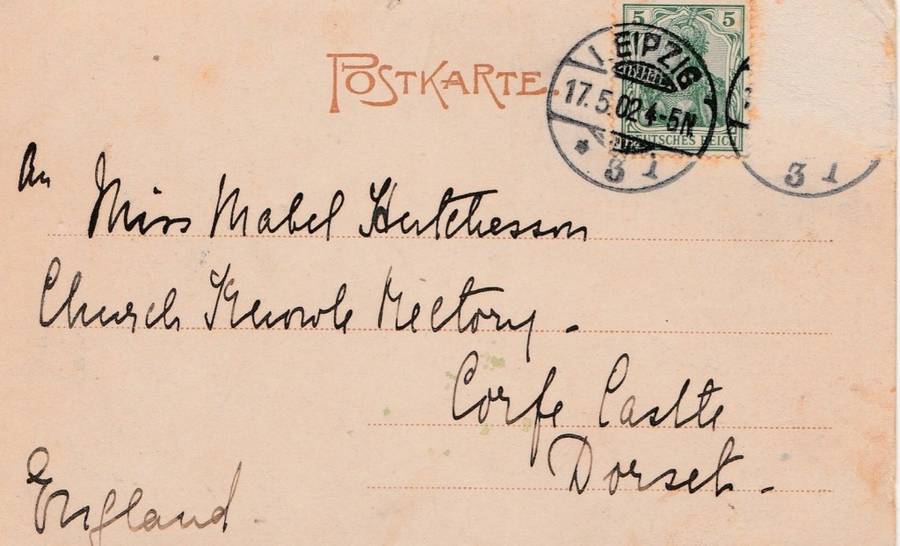 POSTKARTE.
5 5
LEIPZIG
17.5.02 4-5N
* 3 1
DEUTSCHES REICH
3 1
An
Miss Mabel Hutchesson
Church Knowle Rectory -
Corfe Castle
Dorset -
England.